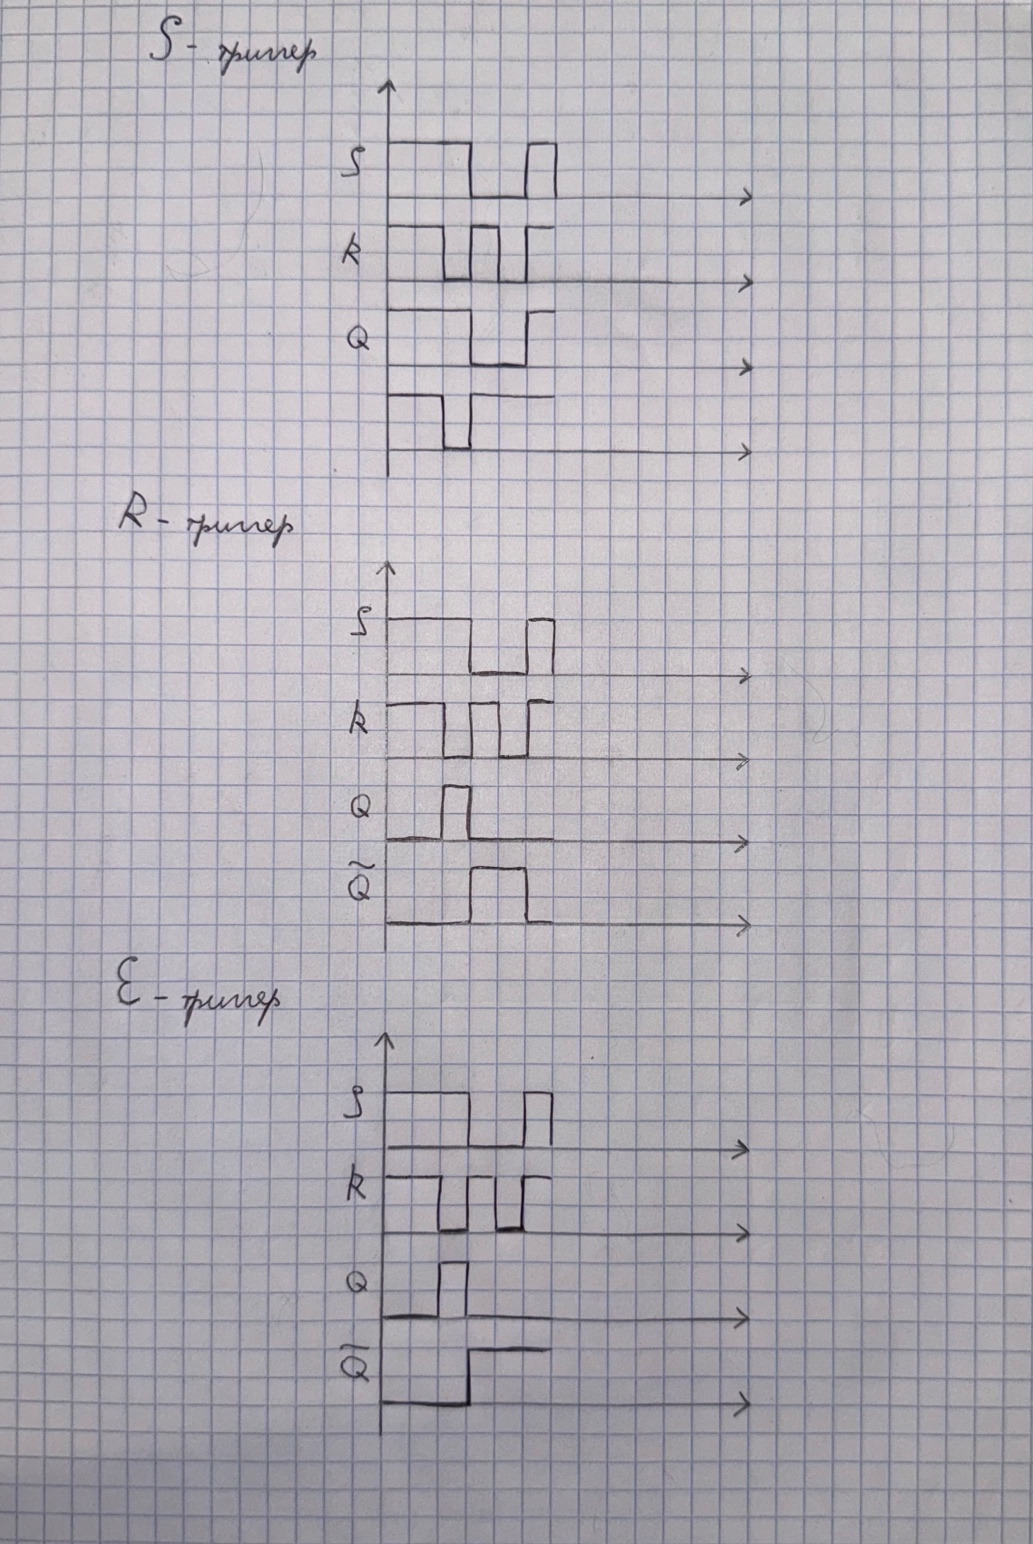 S - тригер
S
R
Q
R - тригер
S
R
Q
Q̃
E - тригер
S
R
Q
Q̃